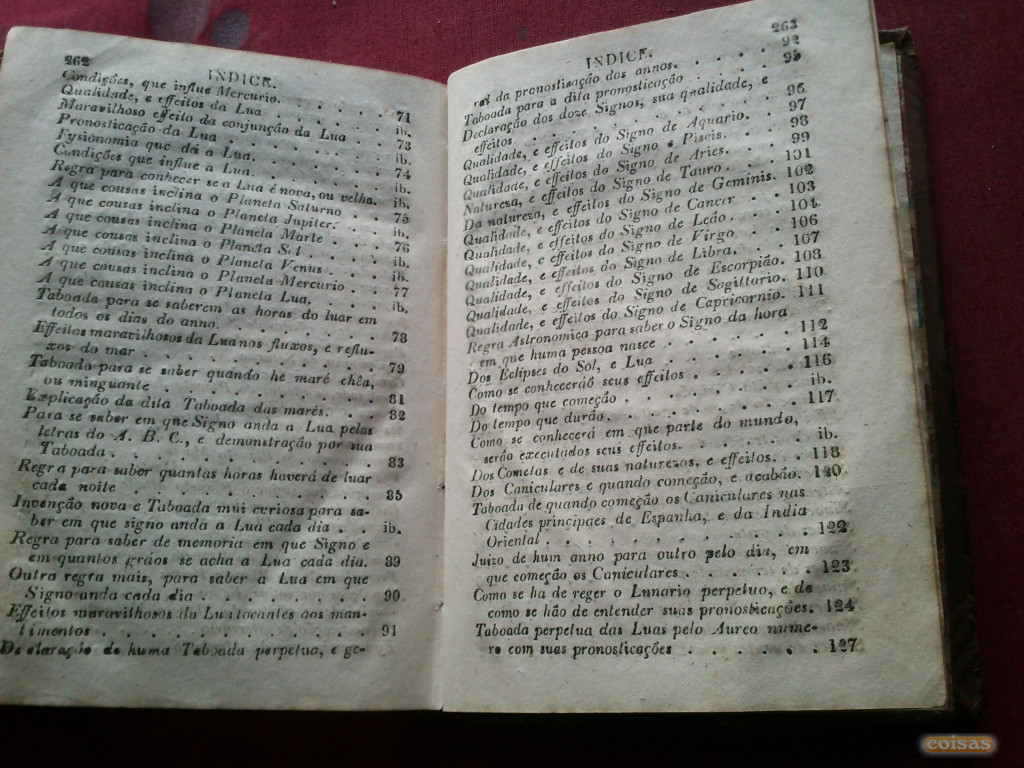 262
INDICE.
Condições, que influe Mercurio. . . . . . 71
Qualidade, e effeitos da Lua . . . . . ib.
Maravilhoso effeito da conjunção da Lua 73
Pronosticação da Lua . . . . . . ib.
Fysionomia que dá a Lua. . . . . 74
Condições que influe a Lua. . . . .
Regra para conhecer se a Lua é nova, ou velha. ib.
A que cousas inclina o Planeta Saturno . . 75
A que cousas inclina o Planeta Jupiter. . . ib.
A que cousas inclina o Planeta Marte . . 76
A que cousas inclina o Planeta Sol . . . ib.
A que cousas inclina o Planeta Venus . . . ib.
A que cousas inclina o Planeta Mercurio . . 77
A que cousas inclina o Planeta Lua. . . . ib.
Taboada para se saberem as horas do luar em
todos os dias do anno. . . . . . . . 78
Effeitos maravilhosos da Lua nos fluxos, e reflu-
xos do mar . . . . . . . . . . 79
Taboada para se saber quando he maré chêa,
ou minguante . . . . . . . . . 81
Explicação da dita Taboada das marés. . . 82
Para se saber em que Signo anda a Lua pelas
letras do A. B. C., e demonstração por sua
Taboada. . . . . . . . . . . . 83
Regra para saber quantas horas haverá de luar
cada noite . . . . . . . . . . 85
Invenção nova e Taboada mui curiosa para sa-
ber em que signo anda a Lua cada dia . . ib.
Regra para saber de memoria em que Signo e
em quantos gráos se acha a Lua cada dia. 89
Outra regra mais, para saber a Lua em que
Signo anda cada dia . . . . . . . . 90
Effeitos maravilhosos da Lua tocantes aos man-
timentos . . . . . . . . . . . 91
Declaração de huma Taboada perpetua, e ge-
263
INDICE.
ral da pronosticação dos annos. . . . . 92
Taboada para a dita pronosticação . . . . 95
Declaração dos doze Signos, sua qualidade, e
effeitos . . . . . . . . . . . 96
Qualidade, e effeitos do Signo de Aquario. . 97
Qualidade, e effeitos do Signo e Piscis. . . 98
Qualidade, e effeitos do Signo de Aries. . . 99
Natureza, e effeitos do Signo de Tauro. . . 101
Da natureza, e effeitos do Signo de Geminis. 102
Qualidade, e effeitos do Signo de Cancer . . 103
Qualidade, e effeitos do Signo de Leão. . . 104
Qualidade, e effeitos do Signo de Virgo . . 106
Qualidade, e effeitos do Signo de Libra. . . 107
Qualidade, e effeitos do Signo de Escorpião. 108
Qualidade, e effeitos do Signo de Sagittario. 110
Qualidade, e effeitos do Signo de Capricornio. 111
Regra Astronomica para saber o Signo da hora
em que huma pessoa nasce . . . . . . 112
Dos Eclipses do Sol, e Lua . . . . . . 114
Como se conheceráõ seus effeitos . . . . . 116
Do tempo que começão . . . . . . . . ib.
Do tempo que durão. . . . . . . . . 117
Como se conhecerá em que parte do mundo,
serão executados seus effeitos. . . . . . ib.
Dos Cometas e de suas naturezas, e effeitos. . 118
Dos Caniculares e quando começão, e acabão. 120
Taboada de quando começão os Caniculares nas
Cidades principaes de Espanha, e da India
Oriental . . . . . . . . . . . 122
Juizo de hum anno para outro pelo dia, em
que começão os Caniculares . . . . . . 123
Como se ha de reger o Lunario perpetuo, e de
como se hão de entender suas pronosticações. 124
Taboada perpetua das Luas pelo Aureo nume-
ro com suas pronosticações . . . . . . 127
coisas